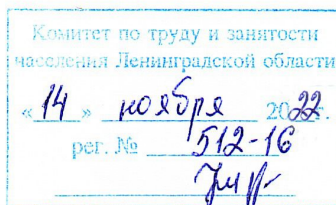 Комитет по труду и занятости
населения Ленинградской области
« 14 » ноября 2022
рег. № 512-16